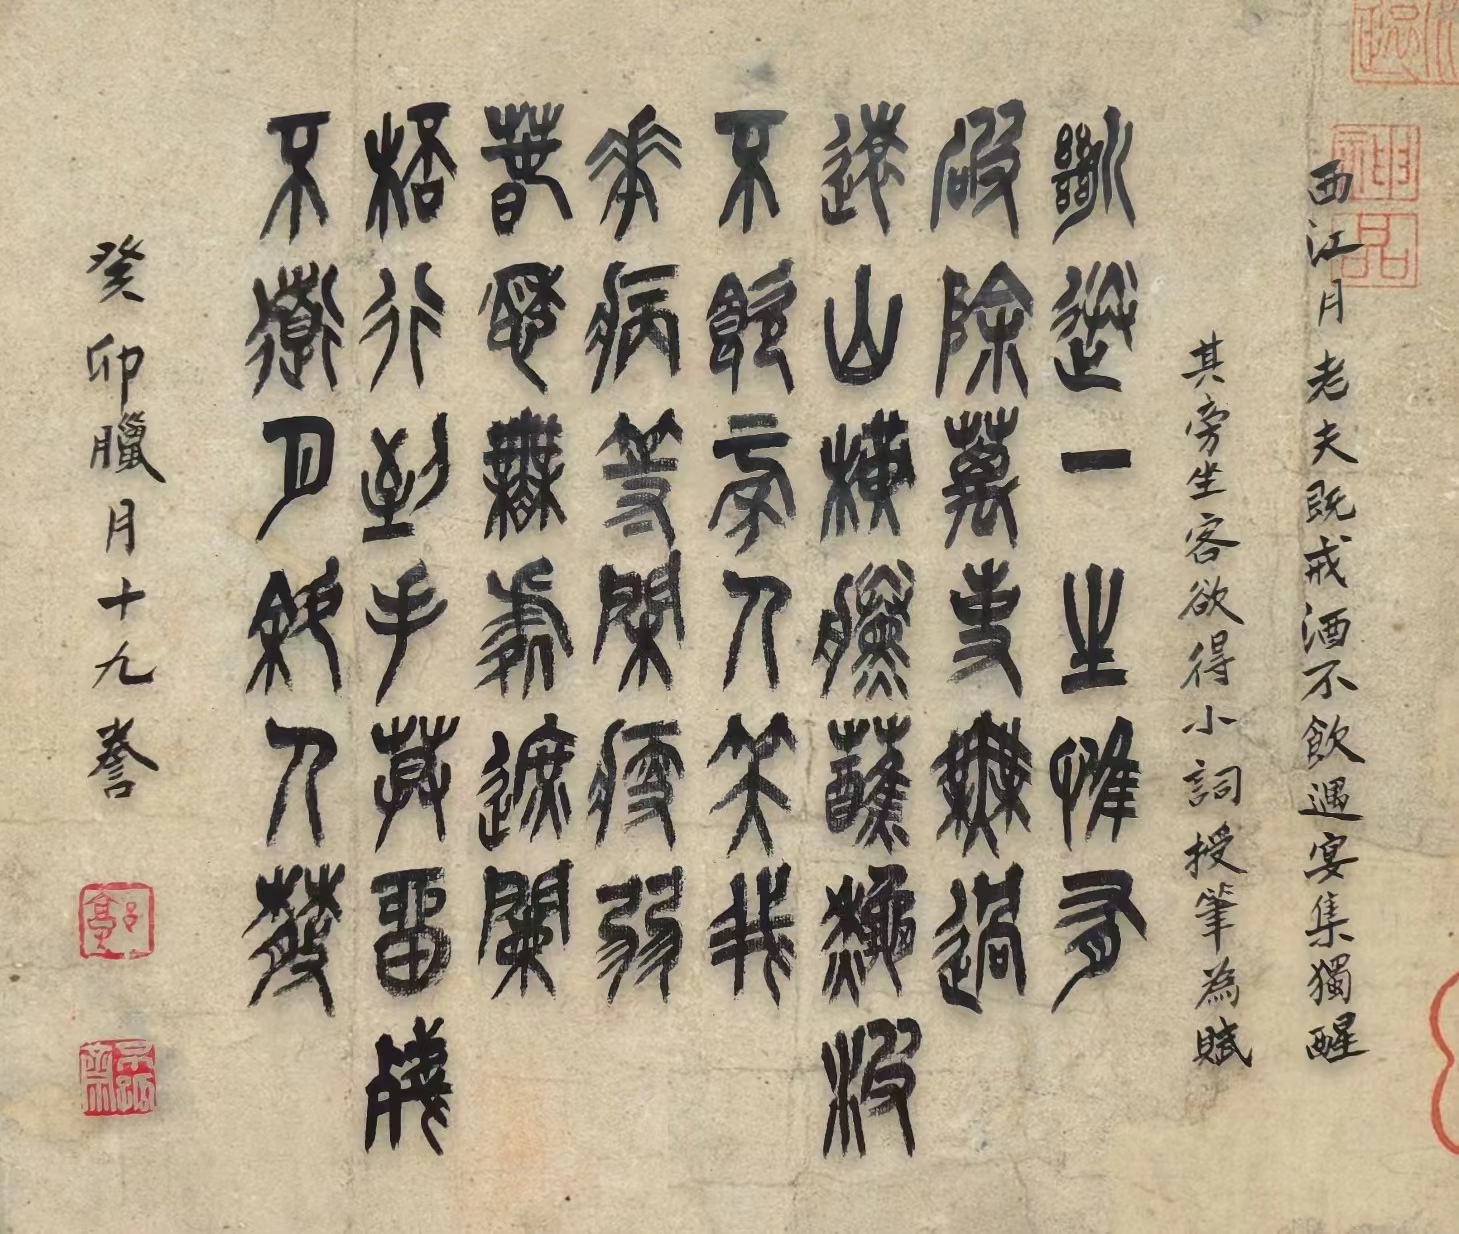 西江月老夫既戒酒不飲遇宴集獨醒
其旁坐客欲得小詞授筆為賦
斷送一生惟有
破除萬事無過
遠山橫黱蘸秋波
不飲旁人笑我
華病等閒瘦弱
春愁無處遮闌
桮行到手莫留殘
不道月斜人散
癸卯臘月十九誊